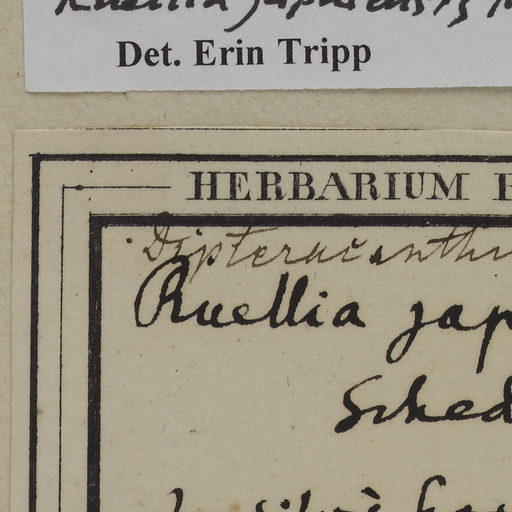 Ruellia japurensis
Det. Erin Tripp
HERBARIUM
Dipteracanthu
Ruellia jap
Sched